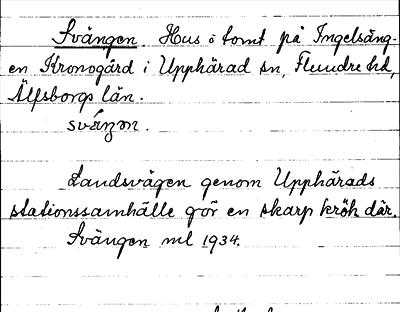 Svängen. Hus o tomt på Ingelsäng-
en Kronogård i Upphärad sn, Flundre hd,
Älfsborgs län.
sváŋən.
Landsvägen genom Upphärads
stationssamhälle gör en skarp krök där.
Svängen ml 1934.